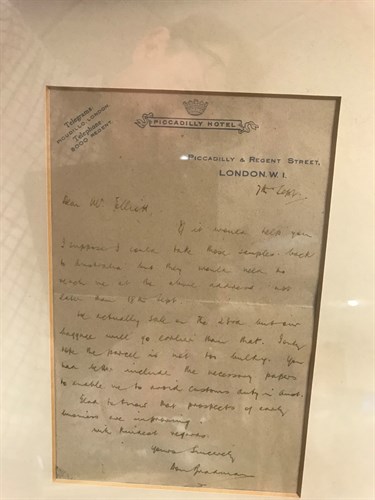 Telegrams:
PICCADILLO, LONDON
Telephone:
8000 REGENT
PICCADILLY HOTEL
PICCADILLY & REGENT STREET,
LONDON. W. 1.
7th Sept
Dear Mr
If it would help you
I suppose I could take those samples back
to Australia but they would need to
reach me at the above address not
later than 15th Sept.
We actually sail on the 23rd but our
baggage will go earlier than that. Surely
the parcel is not too bulky. You
had better include the necessary papers
to enable me to avoid customs duty in Aust.
Glad to that prospects of early
business are improving
with kindest regards.
Yours Sincerely
Don Bradman